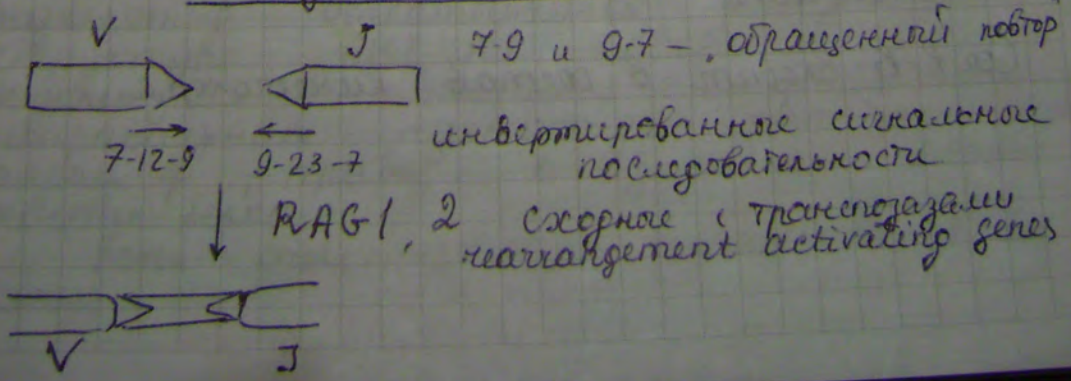 V J 7-9 и 9-7 - обращенный повтор
инвертированные сигнальные
7-12-9 9-23-7 последовательности
RAG1, 2 сходные с транспозазами
rearrangement activating genes
V J